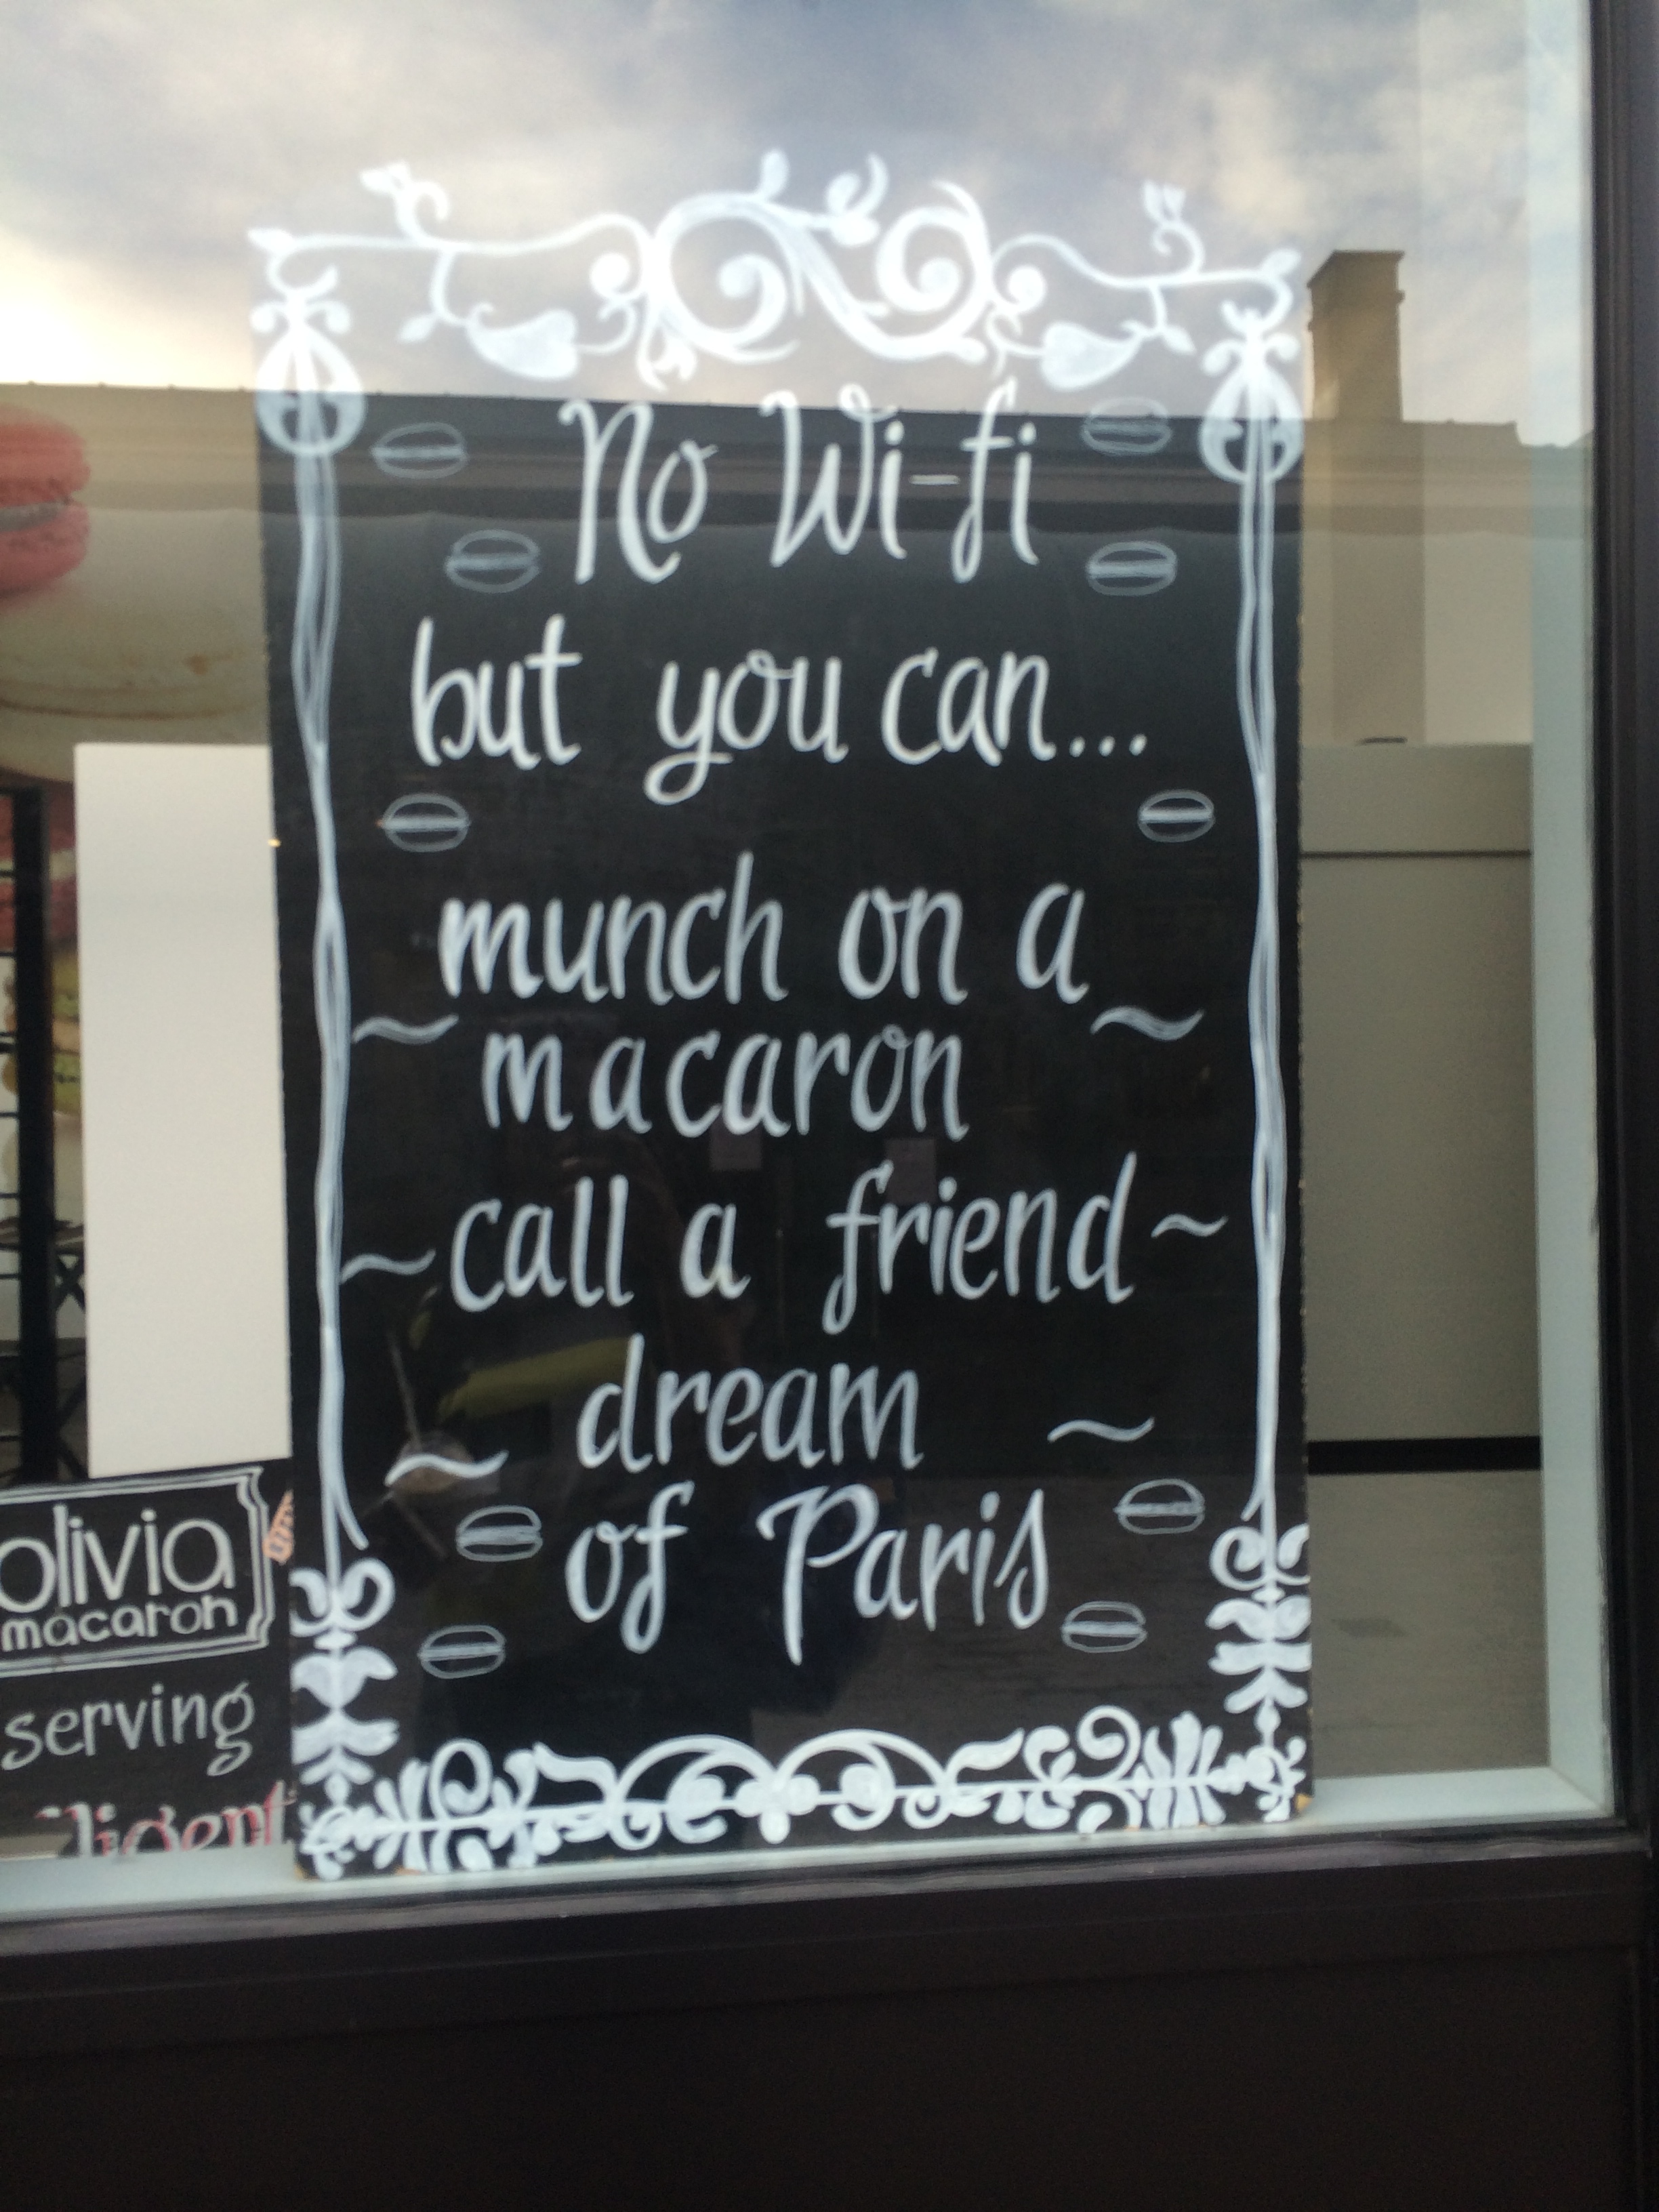 No Wi-fi
but you can...
munch on a
~ macaron ~
~ call a friend ~
~ dream ~
of Paris
olivia
macaron
serving